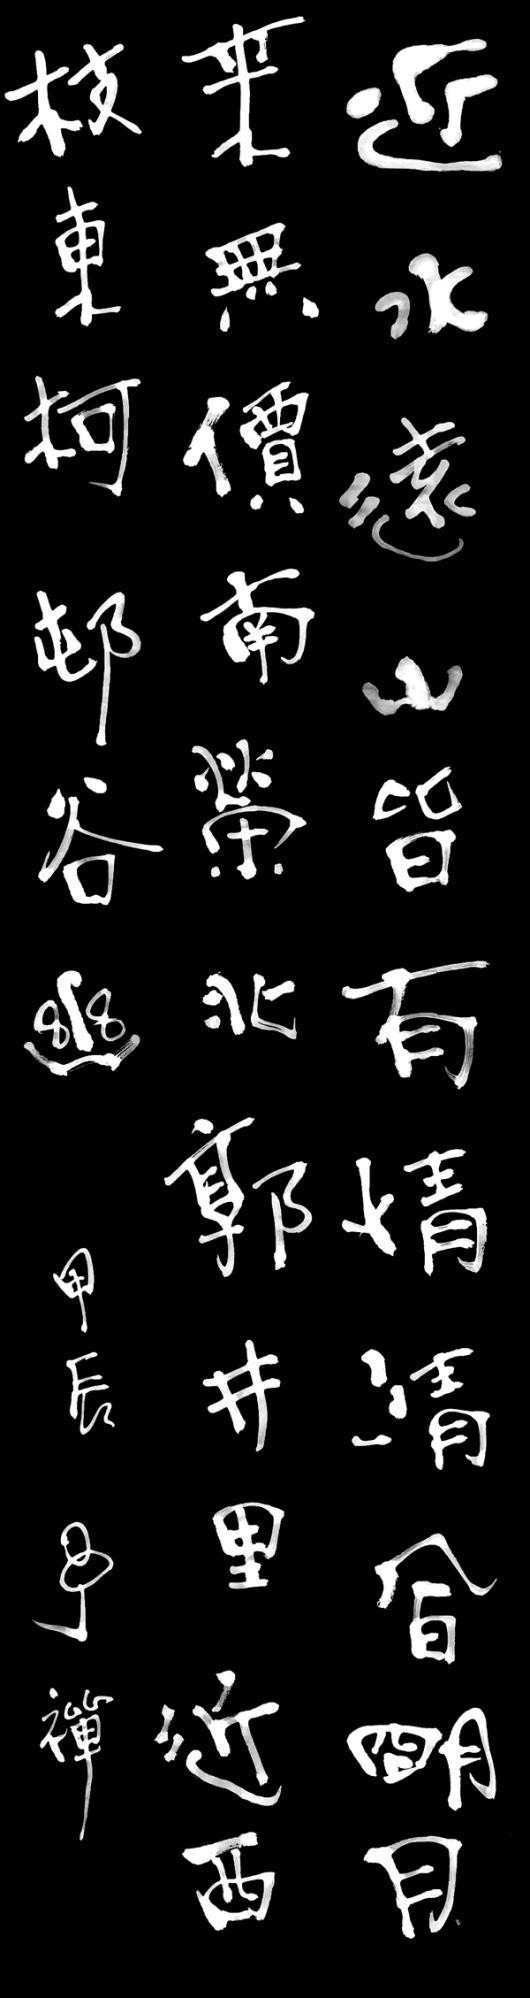 近水遠山皆有情清風明月
本無價南榮北郭井里近西
枝東柯邨谷幽甲辰予禪